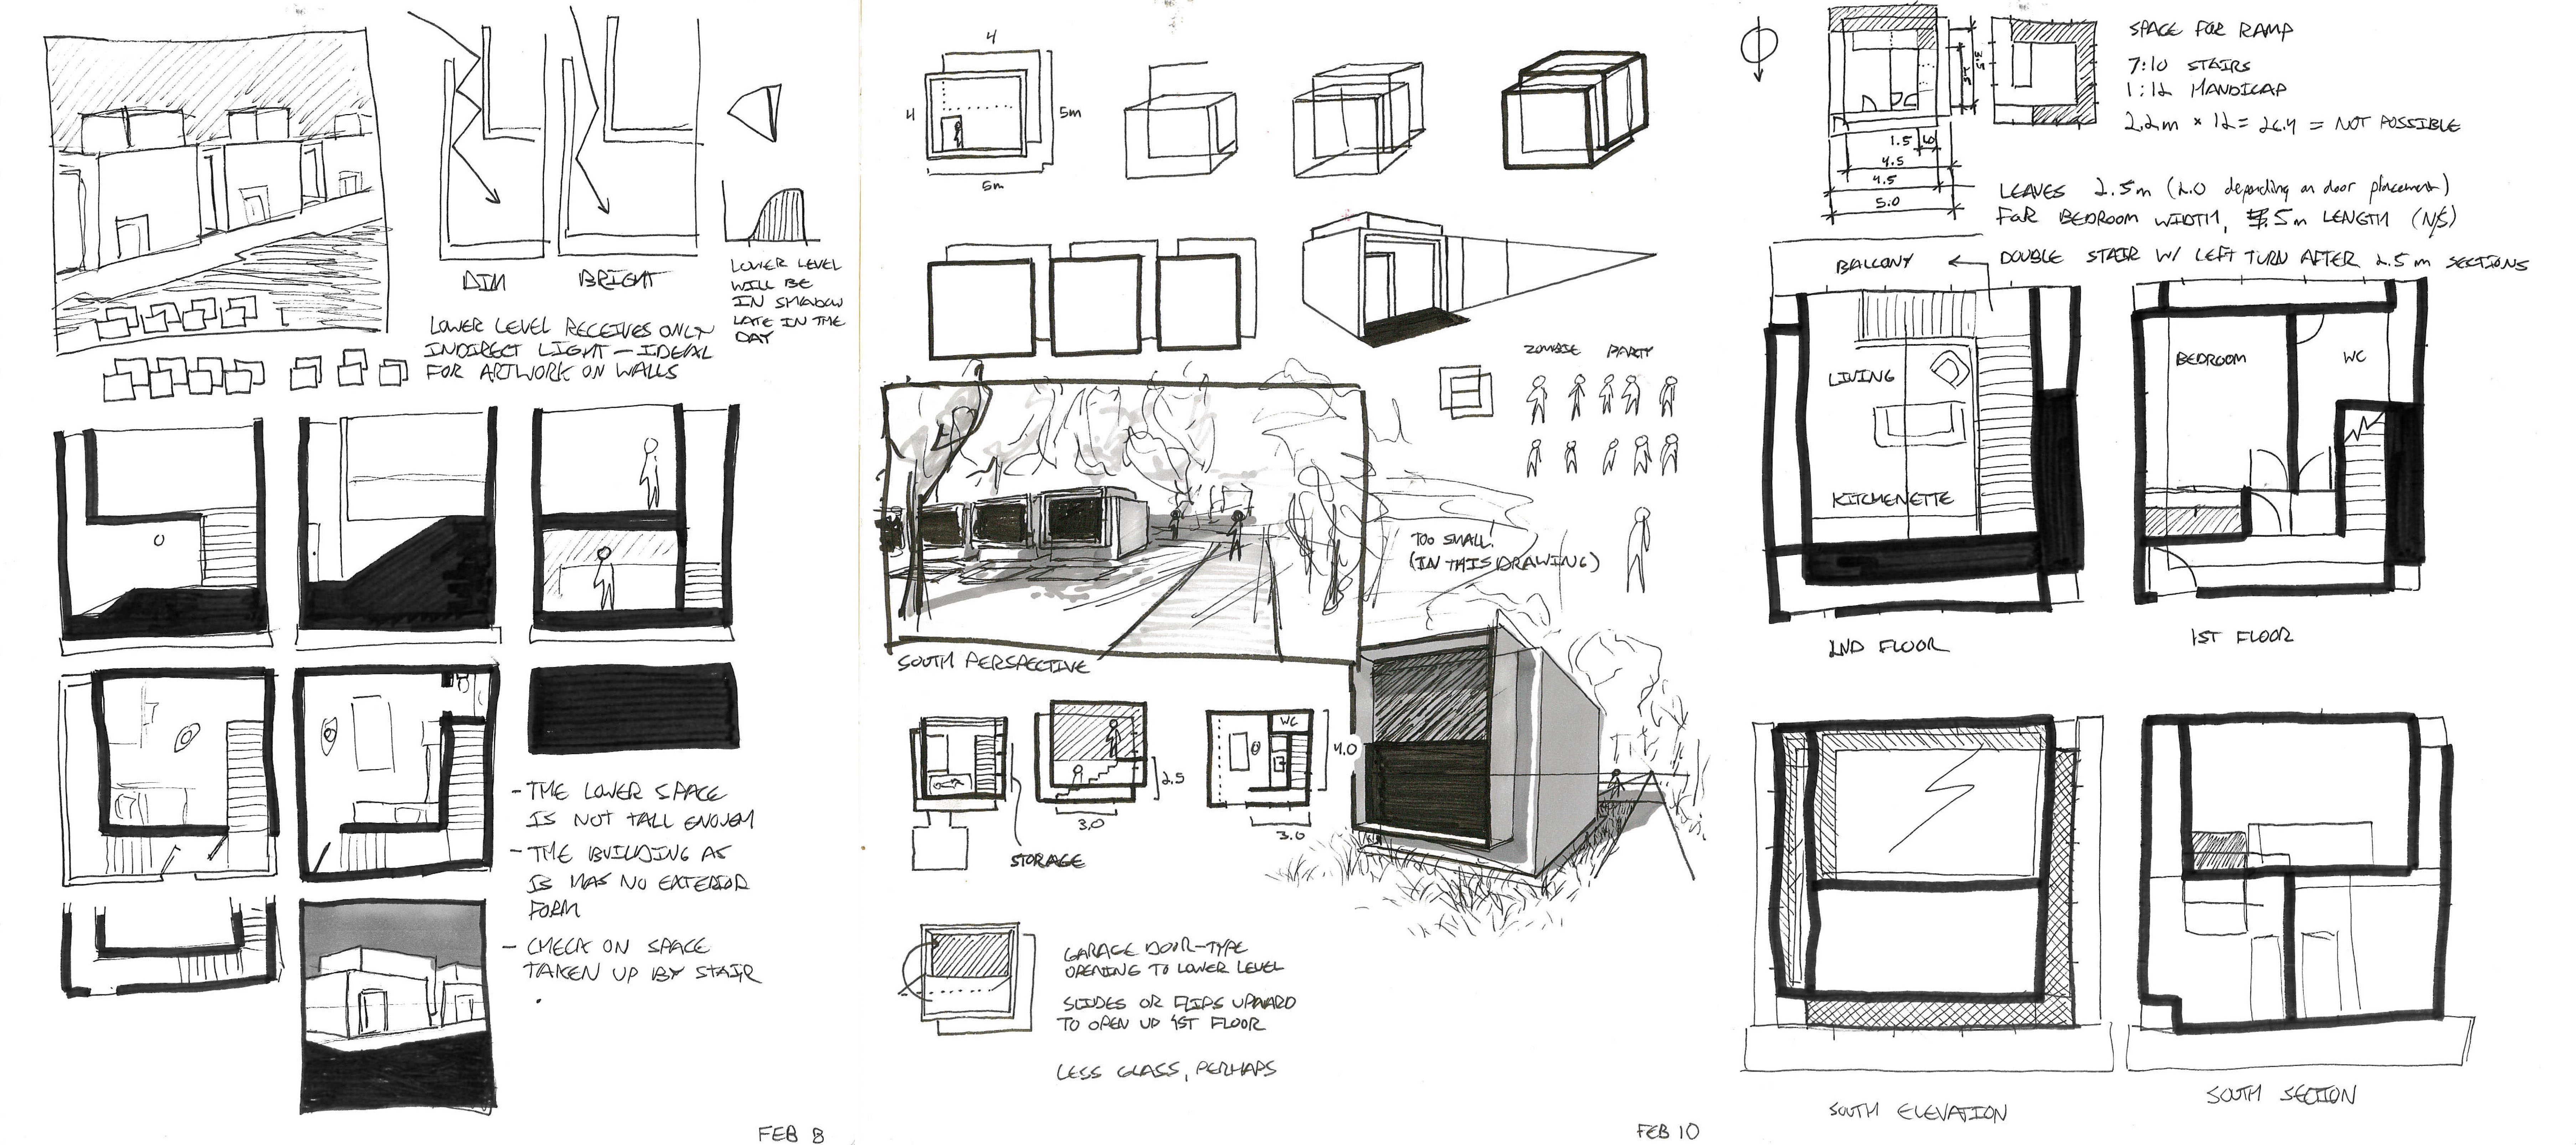 DIM
BRIGHT
LOWER LEVEL
WILL BE
IN SHADOW
LATE IN THE
DAY
LOWER LEVEL RECEIVES ONLY
INDIRECT LIGHT — IDEAL
FOR ARTWORK ON WALLS
- THE LOWER SPACE
IS NOT TALL ENOUGH
- THE BUILDING AS
IS HAS NO EXTERIOR
FORM
- CHECK ON SPACE
TAKEN UP BY STAIR
FEB 8
4
4
5m
5m
ZOMBIE PARTY
TOO SMALL!
(IN THIS DRAWING)
SOUTH PERSPECTIVE
STORAGE
2.5
3.0
WC
4.0
3.0
GARAGE DOOR-TYPE
OPENING TO LOWER LEVEL
SLIDES OR FLIPS UPWARD
TO OPEN UP 1ST FLOOR
LESS GLASS, PERHAPS
FEB 10
SPACE FOR RAMP
7:10 STAIRS
1:12 HANDICAP
2.2m × 12 = 26.4 = NOT POSSIBLE
1.5
4.5
4.5
5.0
LEAVES 2.5m (2.0 depending on door placement)
FOR BEDROOM WIDTH, .5m LENGTH (N/S)
DOUBLE STAIR W/ LEFT TURN AFTER 2.5m SECTIONS
BALCONY
LIVING
KITCHENETTE
2ND FLOOR
BEDROOM
WC
1ST FLOOR
SOUTH ELEVATION
SOUTH SECTION